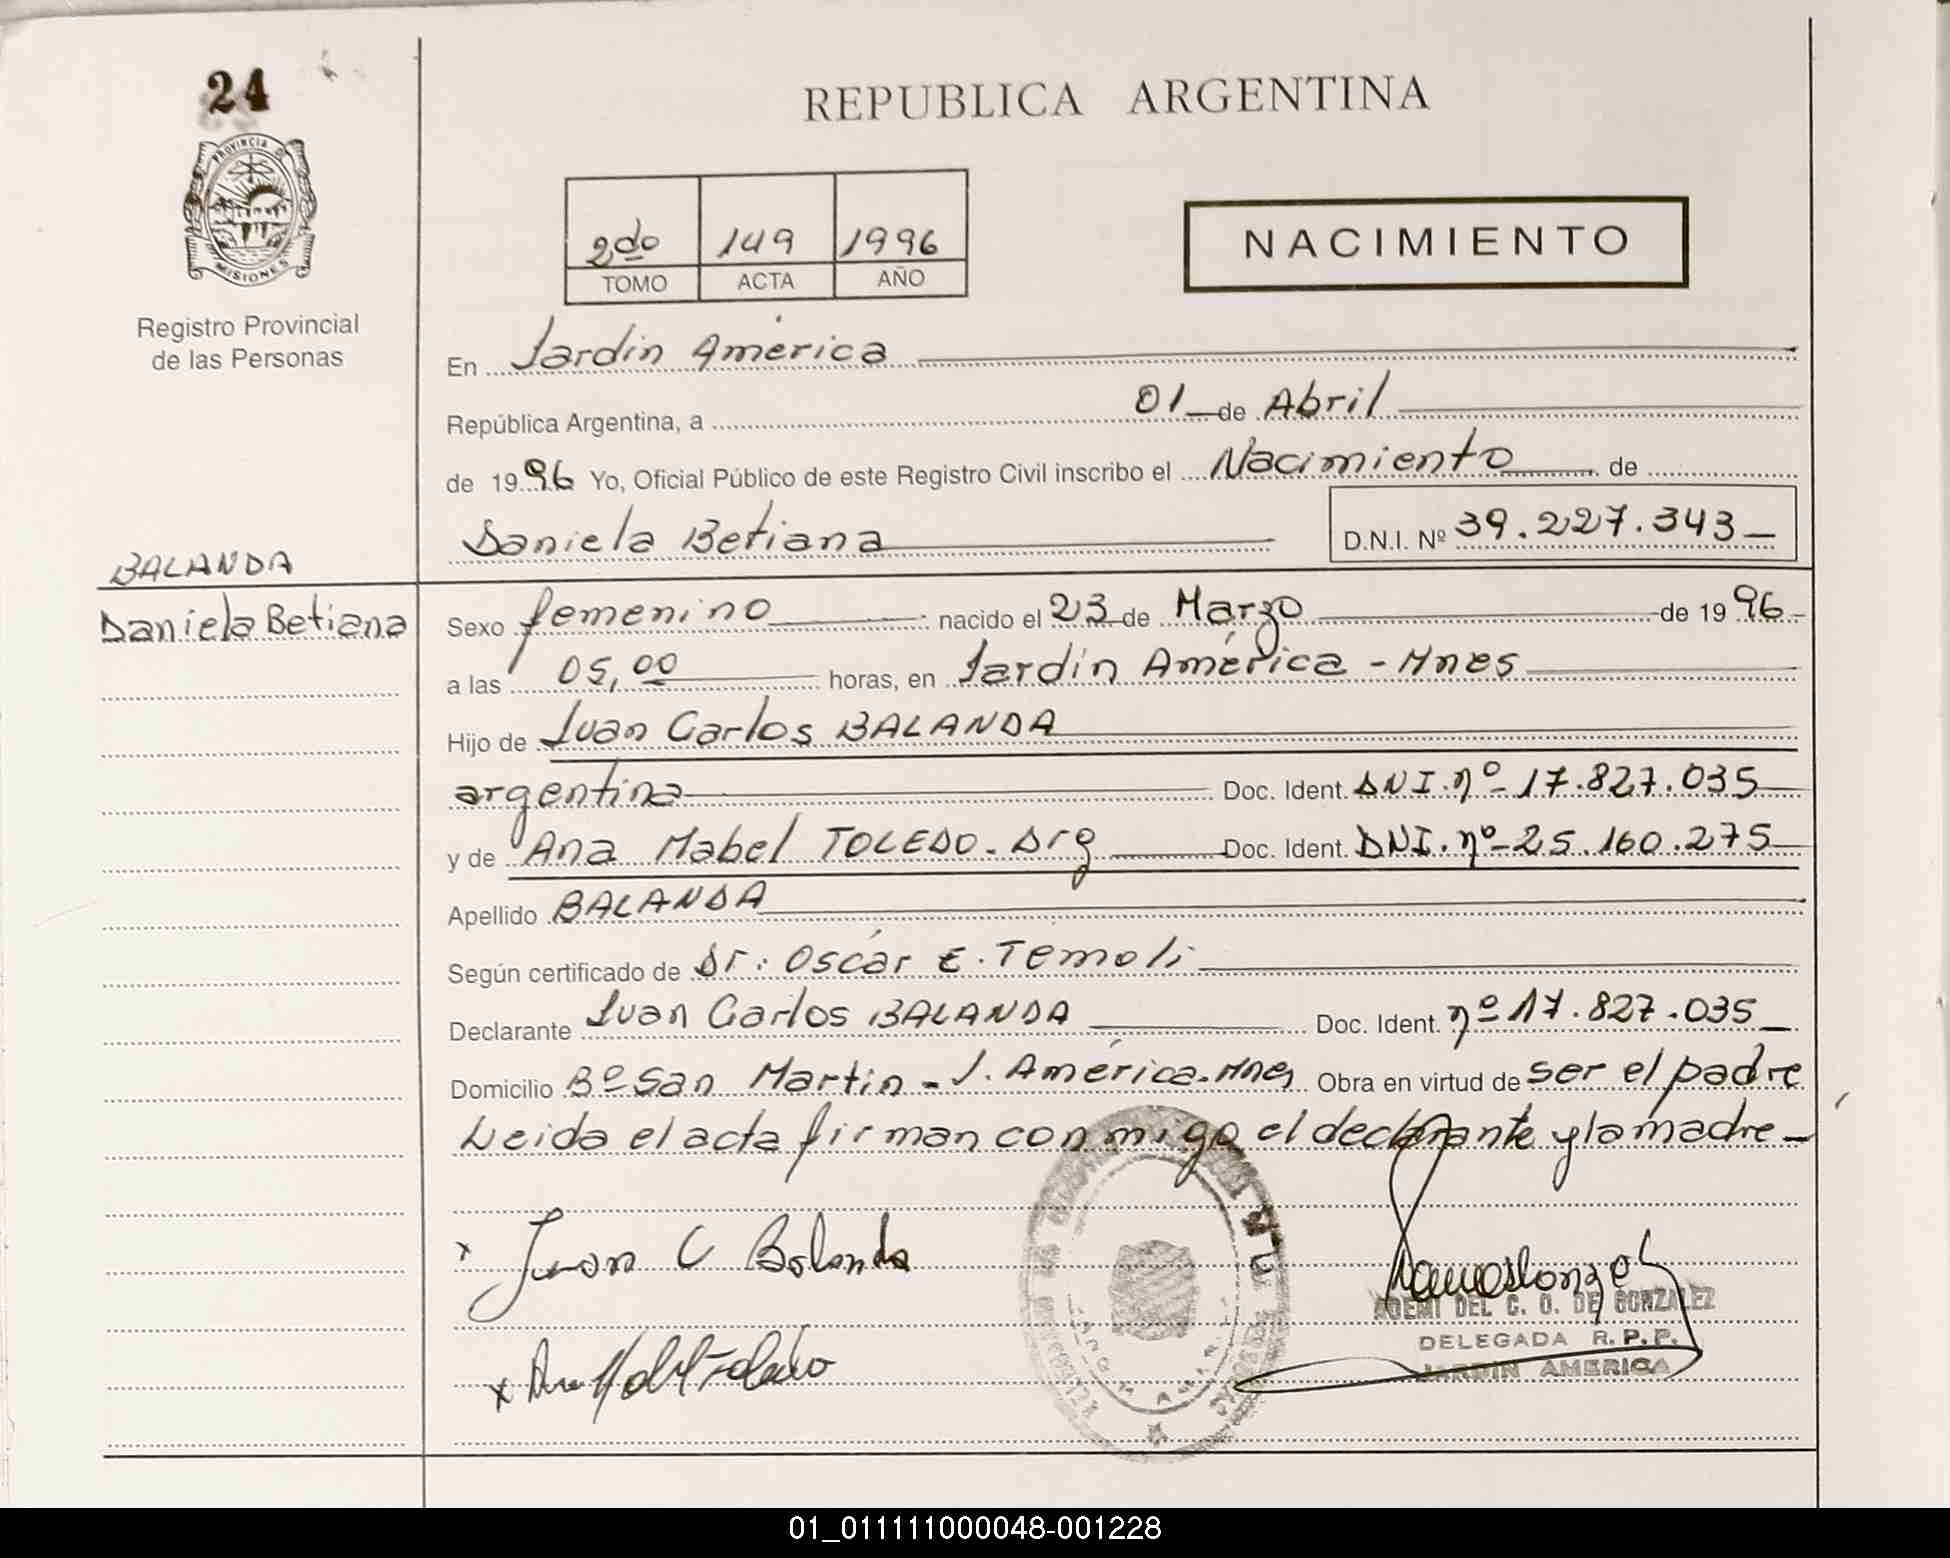 24
PROVINCIA DE
MISIONES
Registro Provincial
de las Personas
REPUBLICA ARGENTINA
2do 149 1996
TOMO ACTA AÑO
NACIMIENTO
En Jardín América
República Argentina, a 01 de Abril
de 1996 Yo, Oficial Público de este Registro Civil inscribo el Nacimiento de
Daniela Betiana D.N.I. Nº 39.227.343
BALANDA
Daniela Betiana
Sexo femenino nacido el 23 de Marzo de 1996
a las 05,00 horas, en Jardín América - Mnes
Hijo de Juan Carlos BALANDA
argentina Doc. Ident. DNI. nº 17.827.035
y de Ana Mabel TOLEDO. Arg Doc. Ident. DNI. nº 25.160.275
Apellido BALANDA
Según certificado de Dr: Oscar E. Temoli
Declarante Juan Carlos BALANDA Doc. Ident. nº 17.827.035
Domicilio Bº San Martin - J. América. Mnes Obra en virtud de ser el padre
Leida el acta firman conmigo el declarante y la madre
x Juan C Balanda
NOEMI DEL C. O. DE GONZALEZ
DELEGADA R.P.P.
JARDIN AMERICA
x Ana Mabel Toledo
01_011111000048-001228